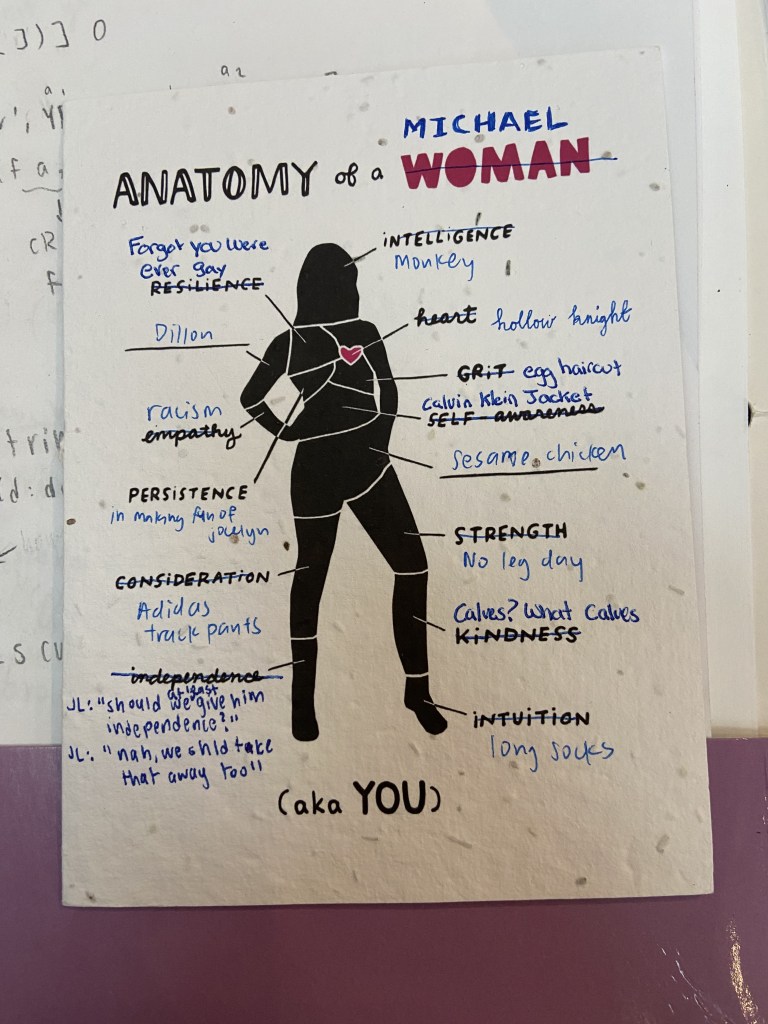 ])] 0
a1
a2
MICHAEL
ANATOMY of a WOMAN
Forgot you were
ever gay
RESILIENCE
INTELLIGENCE
Monkey
Dillon
heart hollow knight
GRIT egg haircut
racism
empathy
Calvin Klein Jacket
SELF-awareness
sesame chicken
PERSISTENCE
in making fun of
jocelyn
STRENGTH
No leg day
CONSIDERATION
Adidas
track pants
Calves? What Calves
KINDNESS
independence
JL: "should we at least give him
independence?"
JL: "nah, we shld take
that away too"
INTUITION
long socks
(aka YOU)